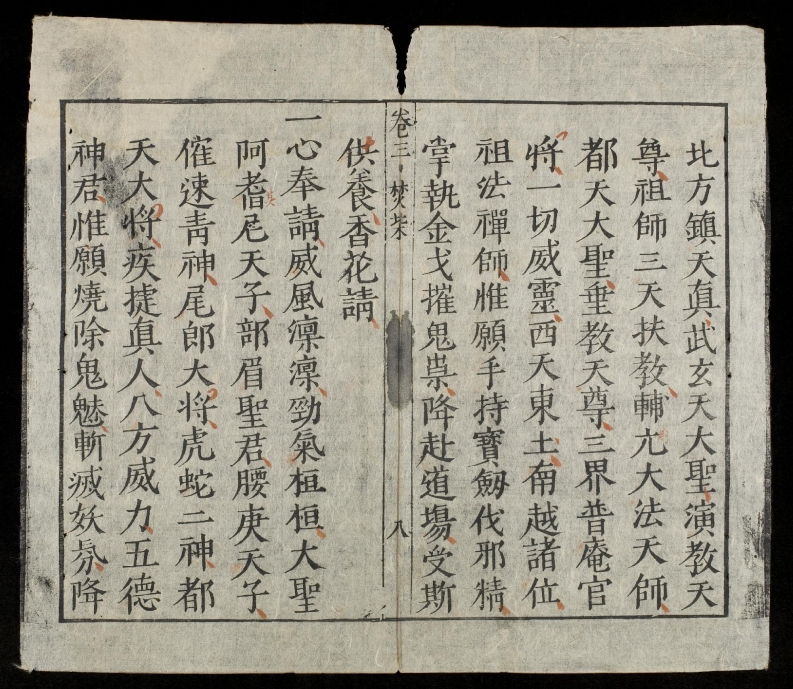 北方鎮天真武玄天大聖演教天
尊祖師三天扶教輔元大法天師
都天大聖垂教天尊三界普庵官
將一切威靈西天東土南越諸位
祖法禪師惟願手持寶劔伐邪精
掌執金戈摧鬼祟降赴道場受斯
供養香花請
卷三 焚柴 八
一心奉請威風凛凛勁氣桓桓大聖
阿耆尼天子部眉聖君腰庚天子
催速青神尾郎大將虎蛇二神都
天大將疾捷真人八方威力五德
神君惟願燒除鬼魅斬滅妖氛降